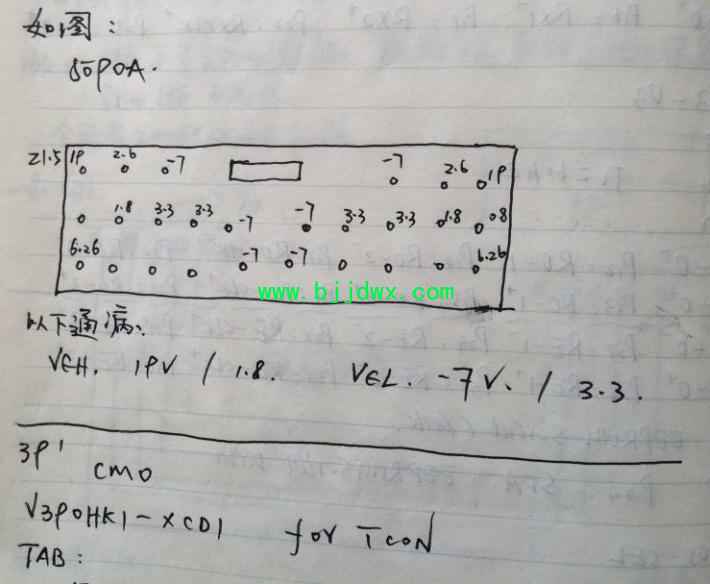 如图:
21.5 19 2.6 -7 -7 2.6 19
1.8 3.3 3.3 -7 -7 3.3 3.3 1.8
6.26 -7 -7 6.26
www.bijdwx.com
以下通病:
VGH. 19V / 1.8. VGL. -7V. / 3.3.
39'
CMO
V390HK1-XCD1 for TCON
TAB: